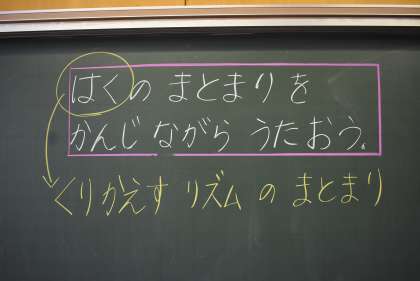 はくの まとまりを
かんじ ながら うたおう。
くりかえす リズム の まとまり